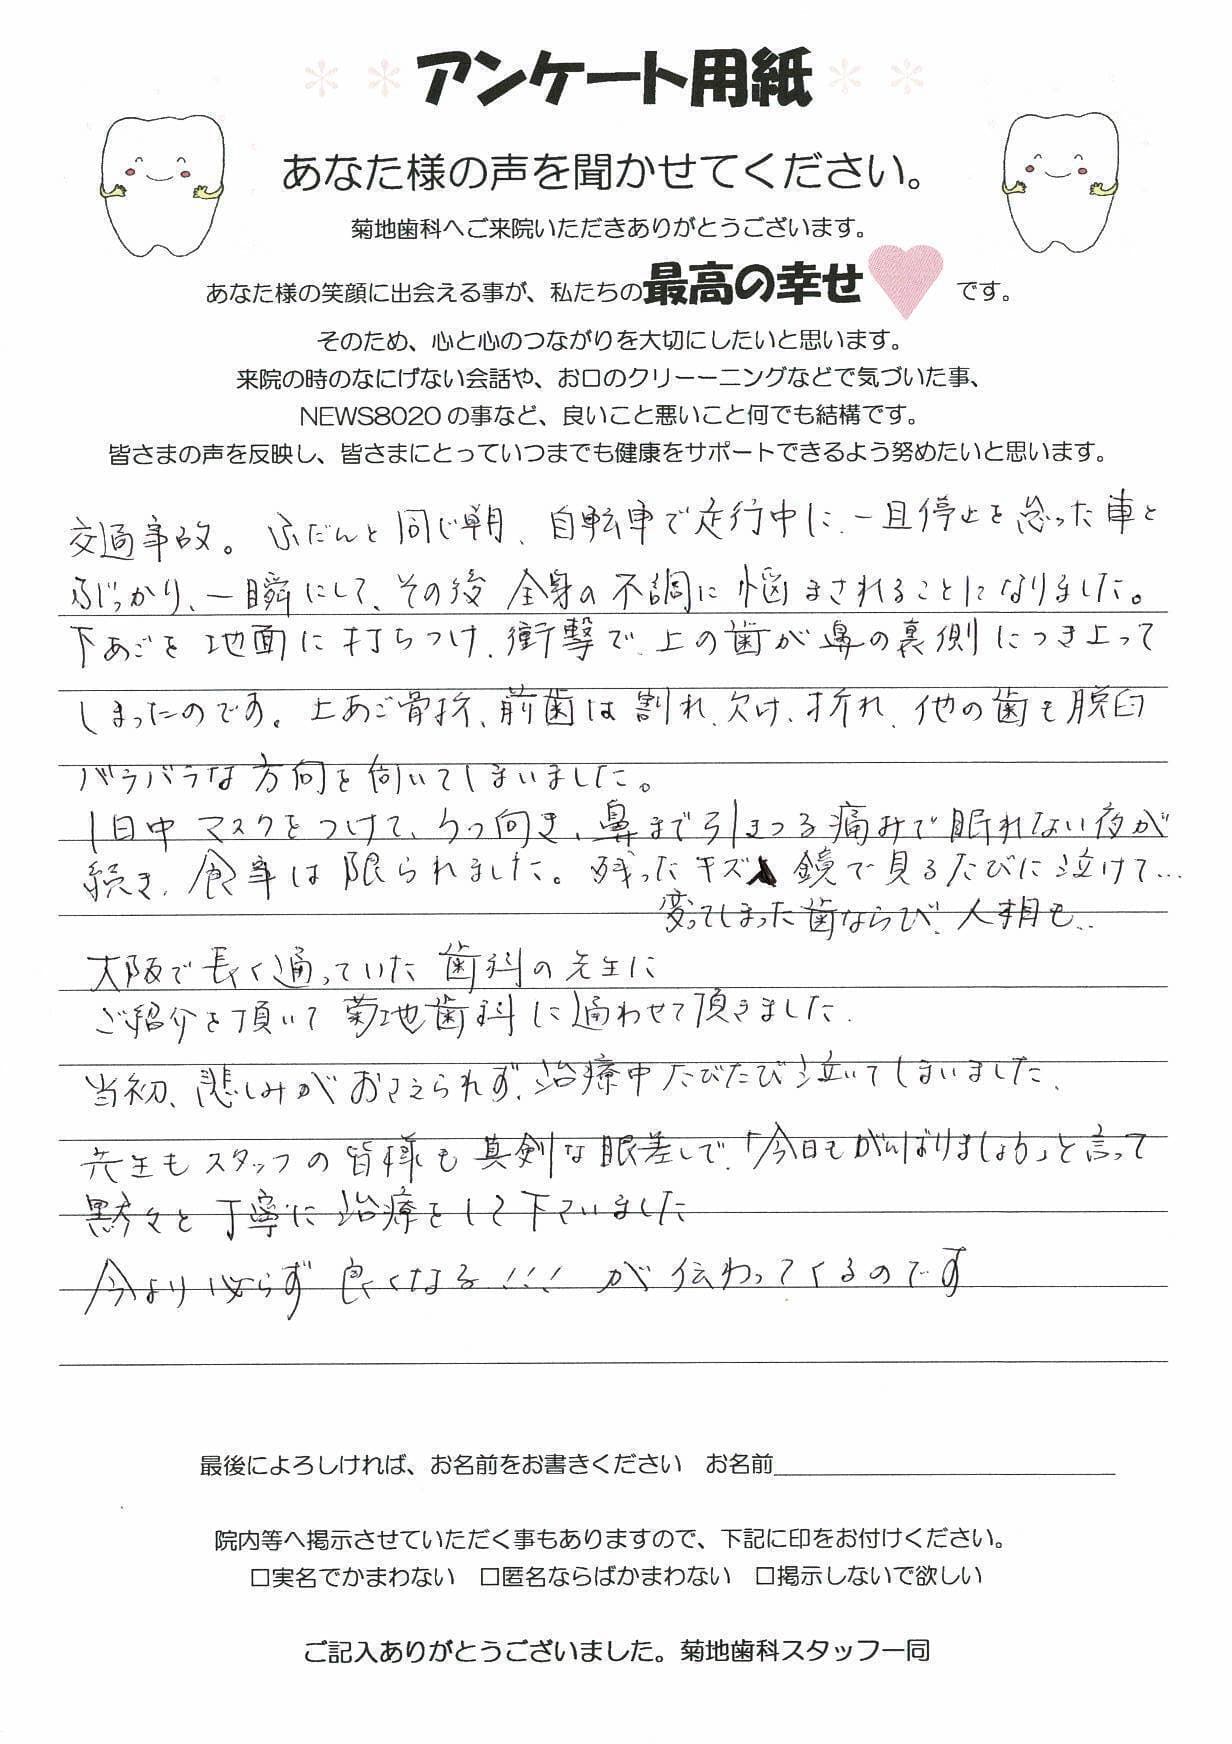 アンケート用紙
あなた様の声を聞かせてください。
菊地歯科へご来院いただきありがとうございます。
あなた様の笑顔に出会える事が、私たちの最高の幸せです。
そのため、心と心のつながりを大切にしたいと思います。
来院の時のなにげない会話や、お口のクリーーニングなどで気づいた事、
NEWS8020 の事など、良いこと悪いこと何でも結構です。
皆さまの声を反映し、皆さまにとっていつまでも健康をサポートできるよう努めたいと思います。
交通事故。ふだんと同じ朝、自転車で走行中に、一旦停止を怠った車と
ぶつかり、一瞬にして、その後 全身の不調に悩まされることになりました。
下あごを地面に打ちつけ、衝撃で、上の歯が鼻の裏側につき上って
しまったのです。上あご骨折、前歯は割れ、欠け、折れ、他の歯も脱臼
バラバラな方向を向いてしまいました。
1日中マスクをつけて、うつ向き、鼻まで引きつる痛みで眠れない夜が
続き、食事は限られました。残ったキズ、鏡で見るたびに泣けて…
変ってしまった歯ならび、人相も…
大阪で長く通っていた歯科の先生に
ご紹介を頂いて菊地歯科に通わせて頂きました.
当初、悲しみがおさえられず、治療中たびたび泣いてしまいました、
先生もスタッフの皆様も真剣な眼差しで、「今日もがんばりましょう」と言って
黙々と丁寧に治療をして下さいました
今より必らず良くなる!!! が伝わってくるのです
最後によろしければ、お名前をお書きください お名前
院内等へ掲示させていただく事もありますので、下記に印をお付けください。
□実名でかまわない □匿名ならばかまわない □掲示しないで欲しい
ご記入ありがとうございました。菊地歯科スタッフ一同